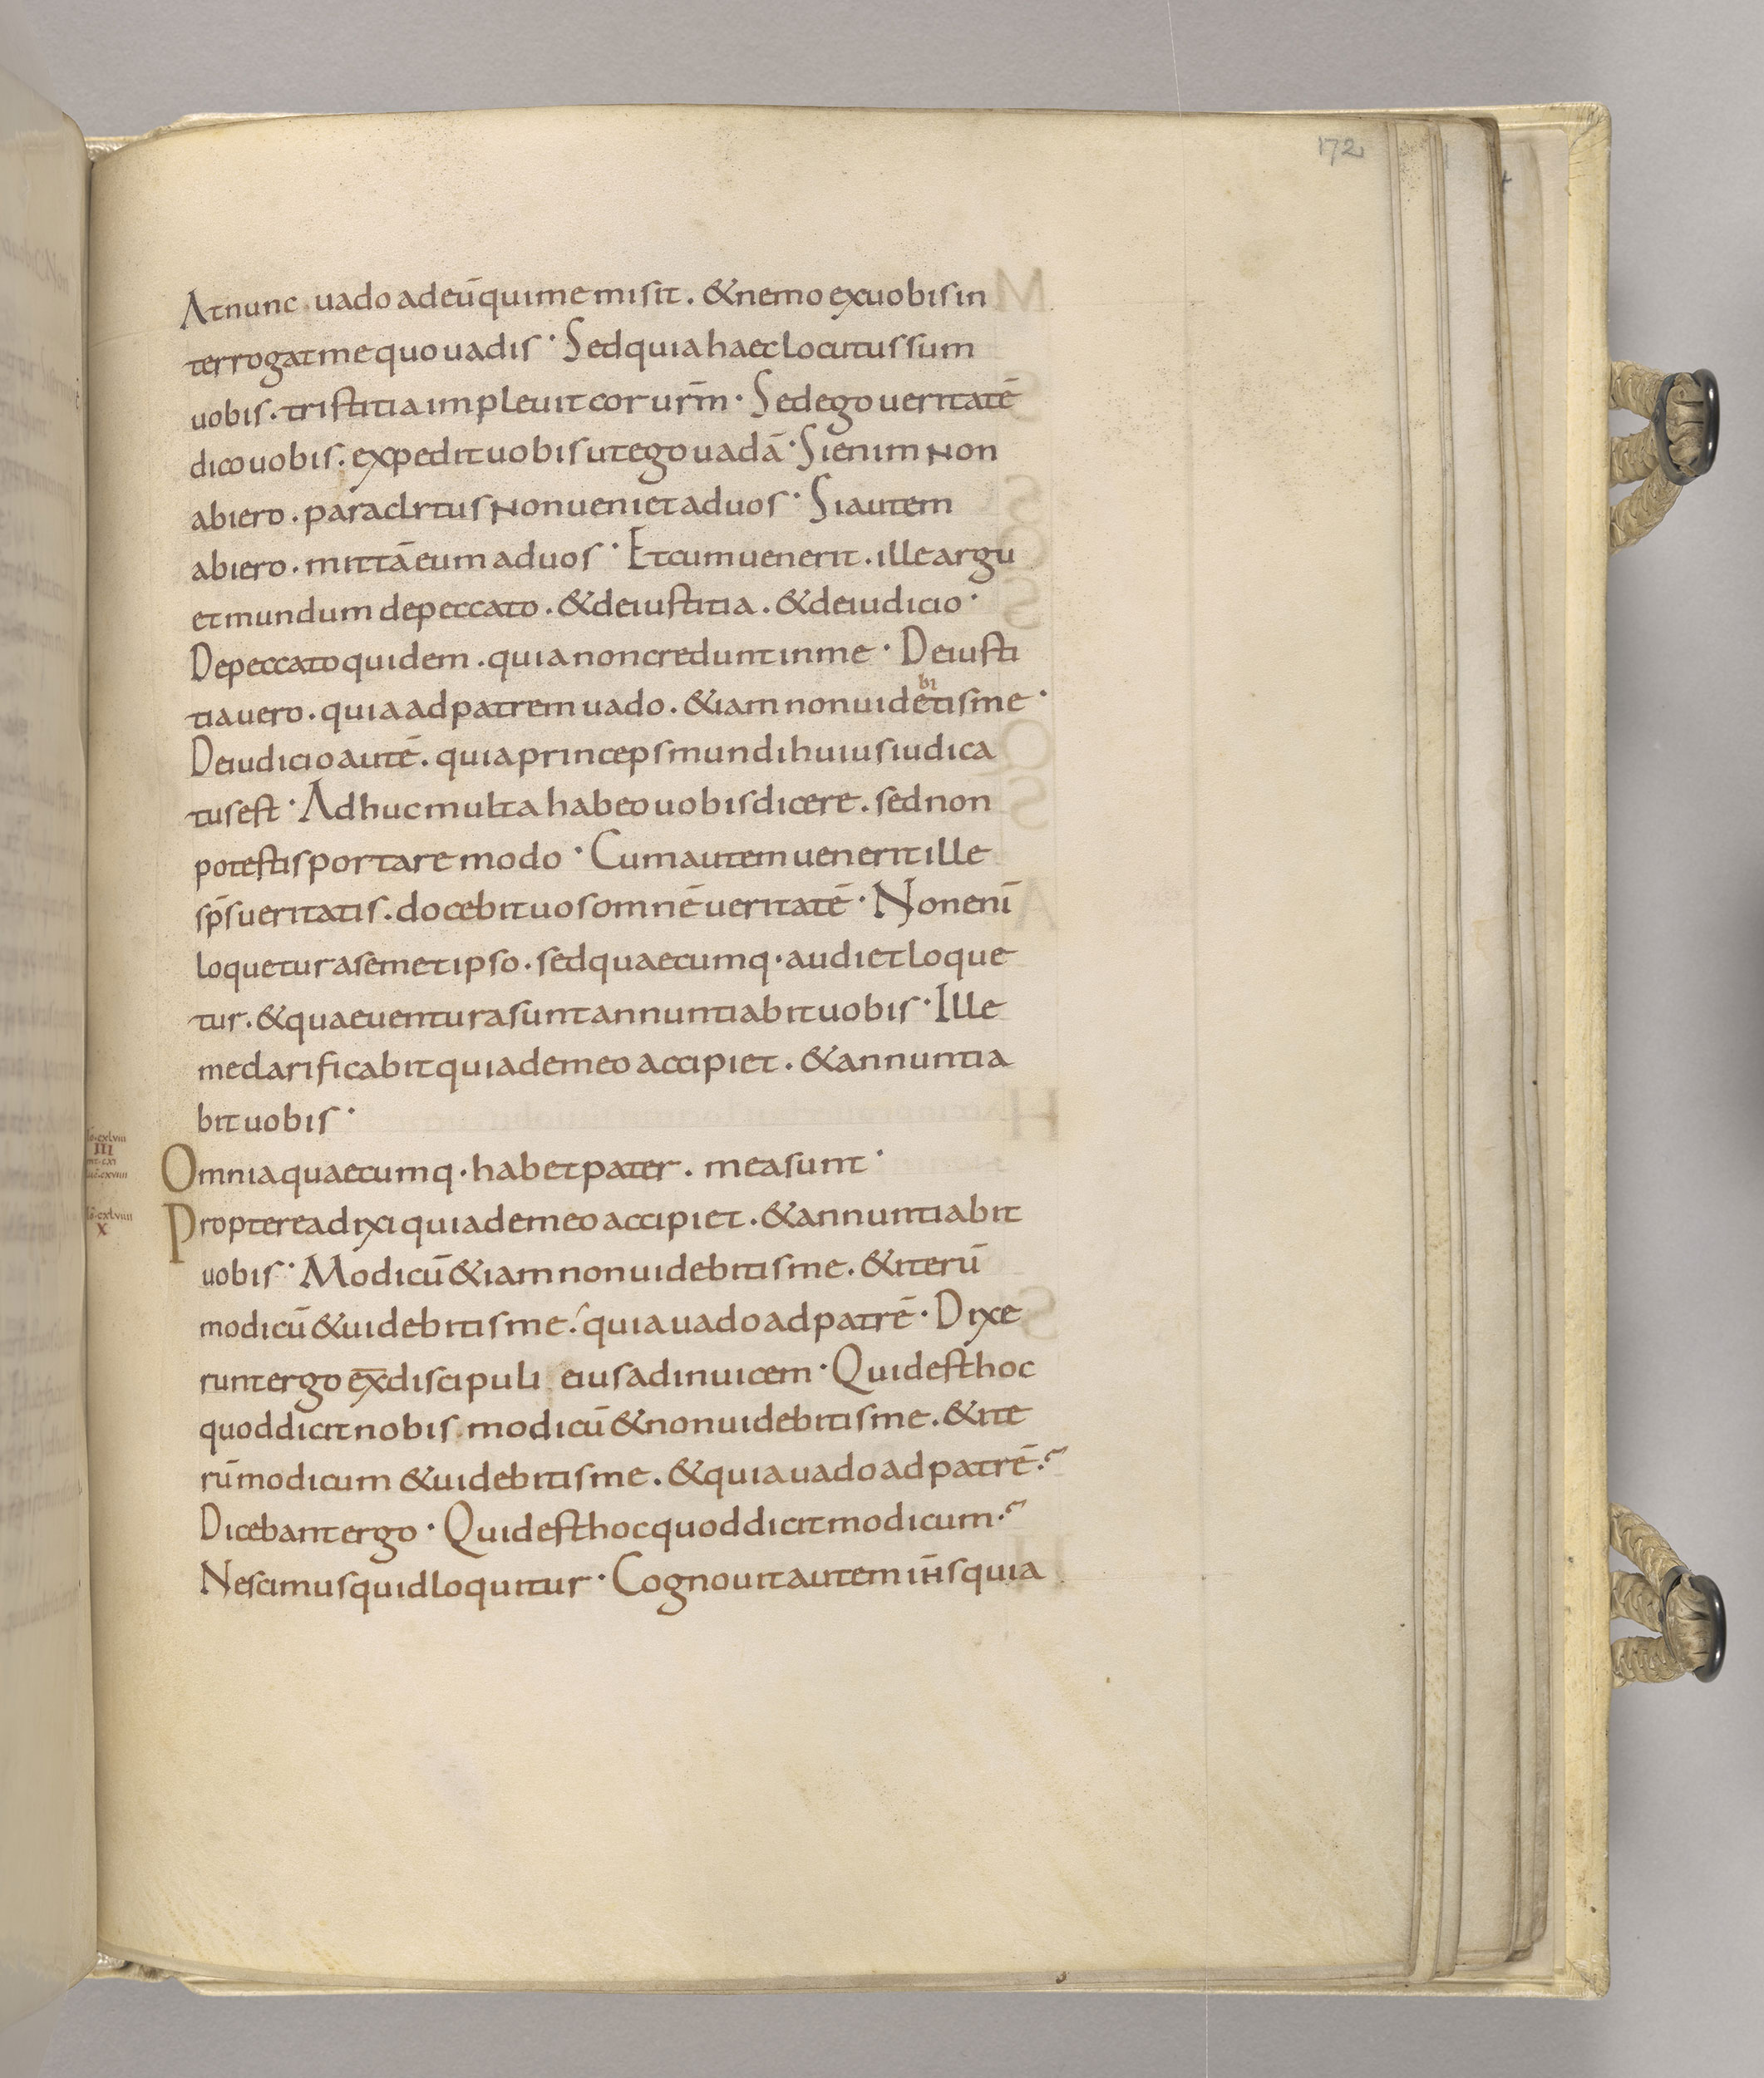 172
At nunc uado ad eū qui me misit. & nemo ex uobis in
terrogat me quo uadis· Sed quia haec locutus sum
uobis. tristitia impleuit cor urm̄· Sed ego ueritatē
dico uobis. expedit uobis ut ego uadā· Si enim non
abiero. paraclitus non ueniet ad uos· Si autem
abiero. mittā eum ad uos· Et cum uenerit. ille argu
et mundum de peccato. & de iustitia. & de iudicio·
De peccato quidem. quia non credunt in me· De iusti
bi
tia uero. quia ad patrem uado. & iam non uidetis me·
De iudicio autē. quia princeps mundi huius iudica
tus est· Adhuc multa habeo uobis dicere. sed non
potestis portare modo· Cum autem uenerit ille
sp̄s ueritatis. docebit uos omnē ueritatē· Non eni̅
loquetur a semetipso. sed quaecumq· audiet loque
tur. & quae uentura sunt annuntiabit uobis· Ille
me clarificabit quia de meo accipiet. & annuntia
bit uobis·
III
Omnia quaecumq· habet pater. mea sunt·
X
Propterea dixi quia de meo accipiet. & annuntiabit
uobis· Modicū & iam non uidebitis me. & iterū
modicū & uidebitis me. quia uado ad patrē· Dixe
runt ergo ex̄ discipuli eius ad inuicem· Quid est hoc
quod dicit nobis modicū & non uidebitis me. & ite
rū modicum & uidebitis me. & quia uado ad patrē.
Dicebant ergo· Quid est hoc quod dicit modicum.
Nescimus quid loquitur· Cognouit autem ih̅s quia